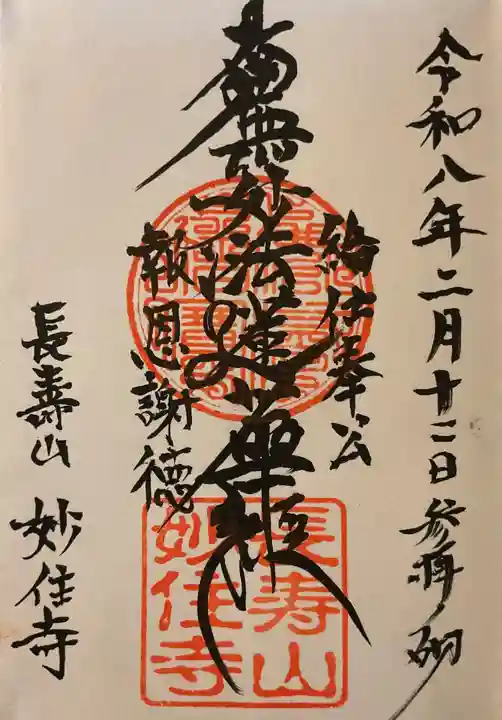 令和八年二月十二日参拝ノ砌
給仕奉公
南無妙法蓮華経
報恩謝徳
長寿山
妙住寺
長壽山 妙住寺